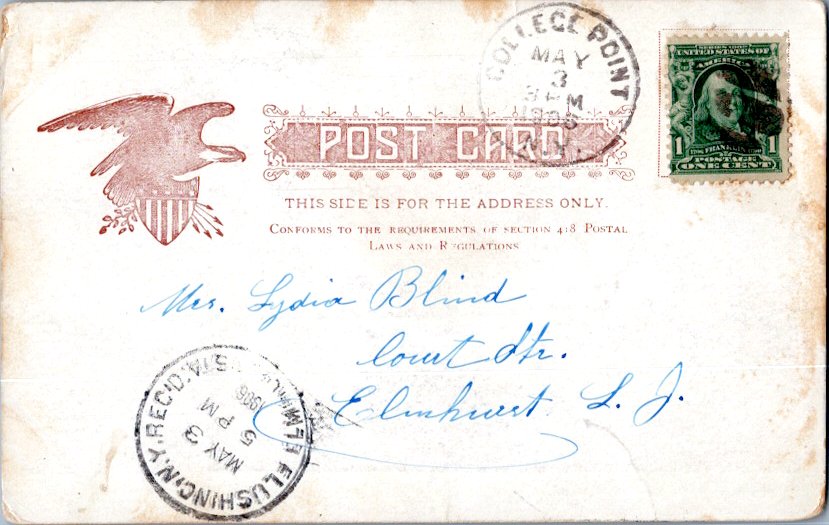 COLLEGE POINT
MAY
3
3 PM
1906
N.Y.
SERIES 1902
UNITED STATES OF
AMERICA
1706 FRANKLIN 1790
POSTAGE
1 ONE CENT 1
POST CARD
THIS SIDE IS FOR THE ADDRESS ONLY.
CONFORMS TO THE REQUIREMENTS OF SECTION 418 POSTAL
LAWS AND REGULATIONS
Mrs. Lydia Blind
Court Str.
Elmhurst L. I.
FLUSHING, N.Y. REC'D.
MAY 3
5 PM
1906